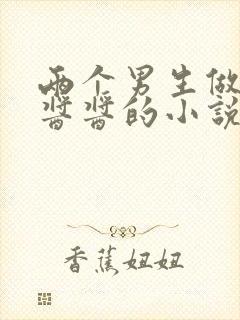 两个男生做
酱酱的小说
香蕉妞妞